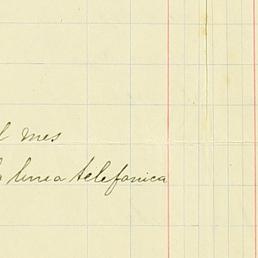 l mes
a linea telefonica